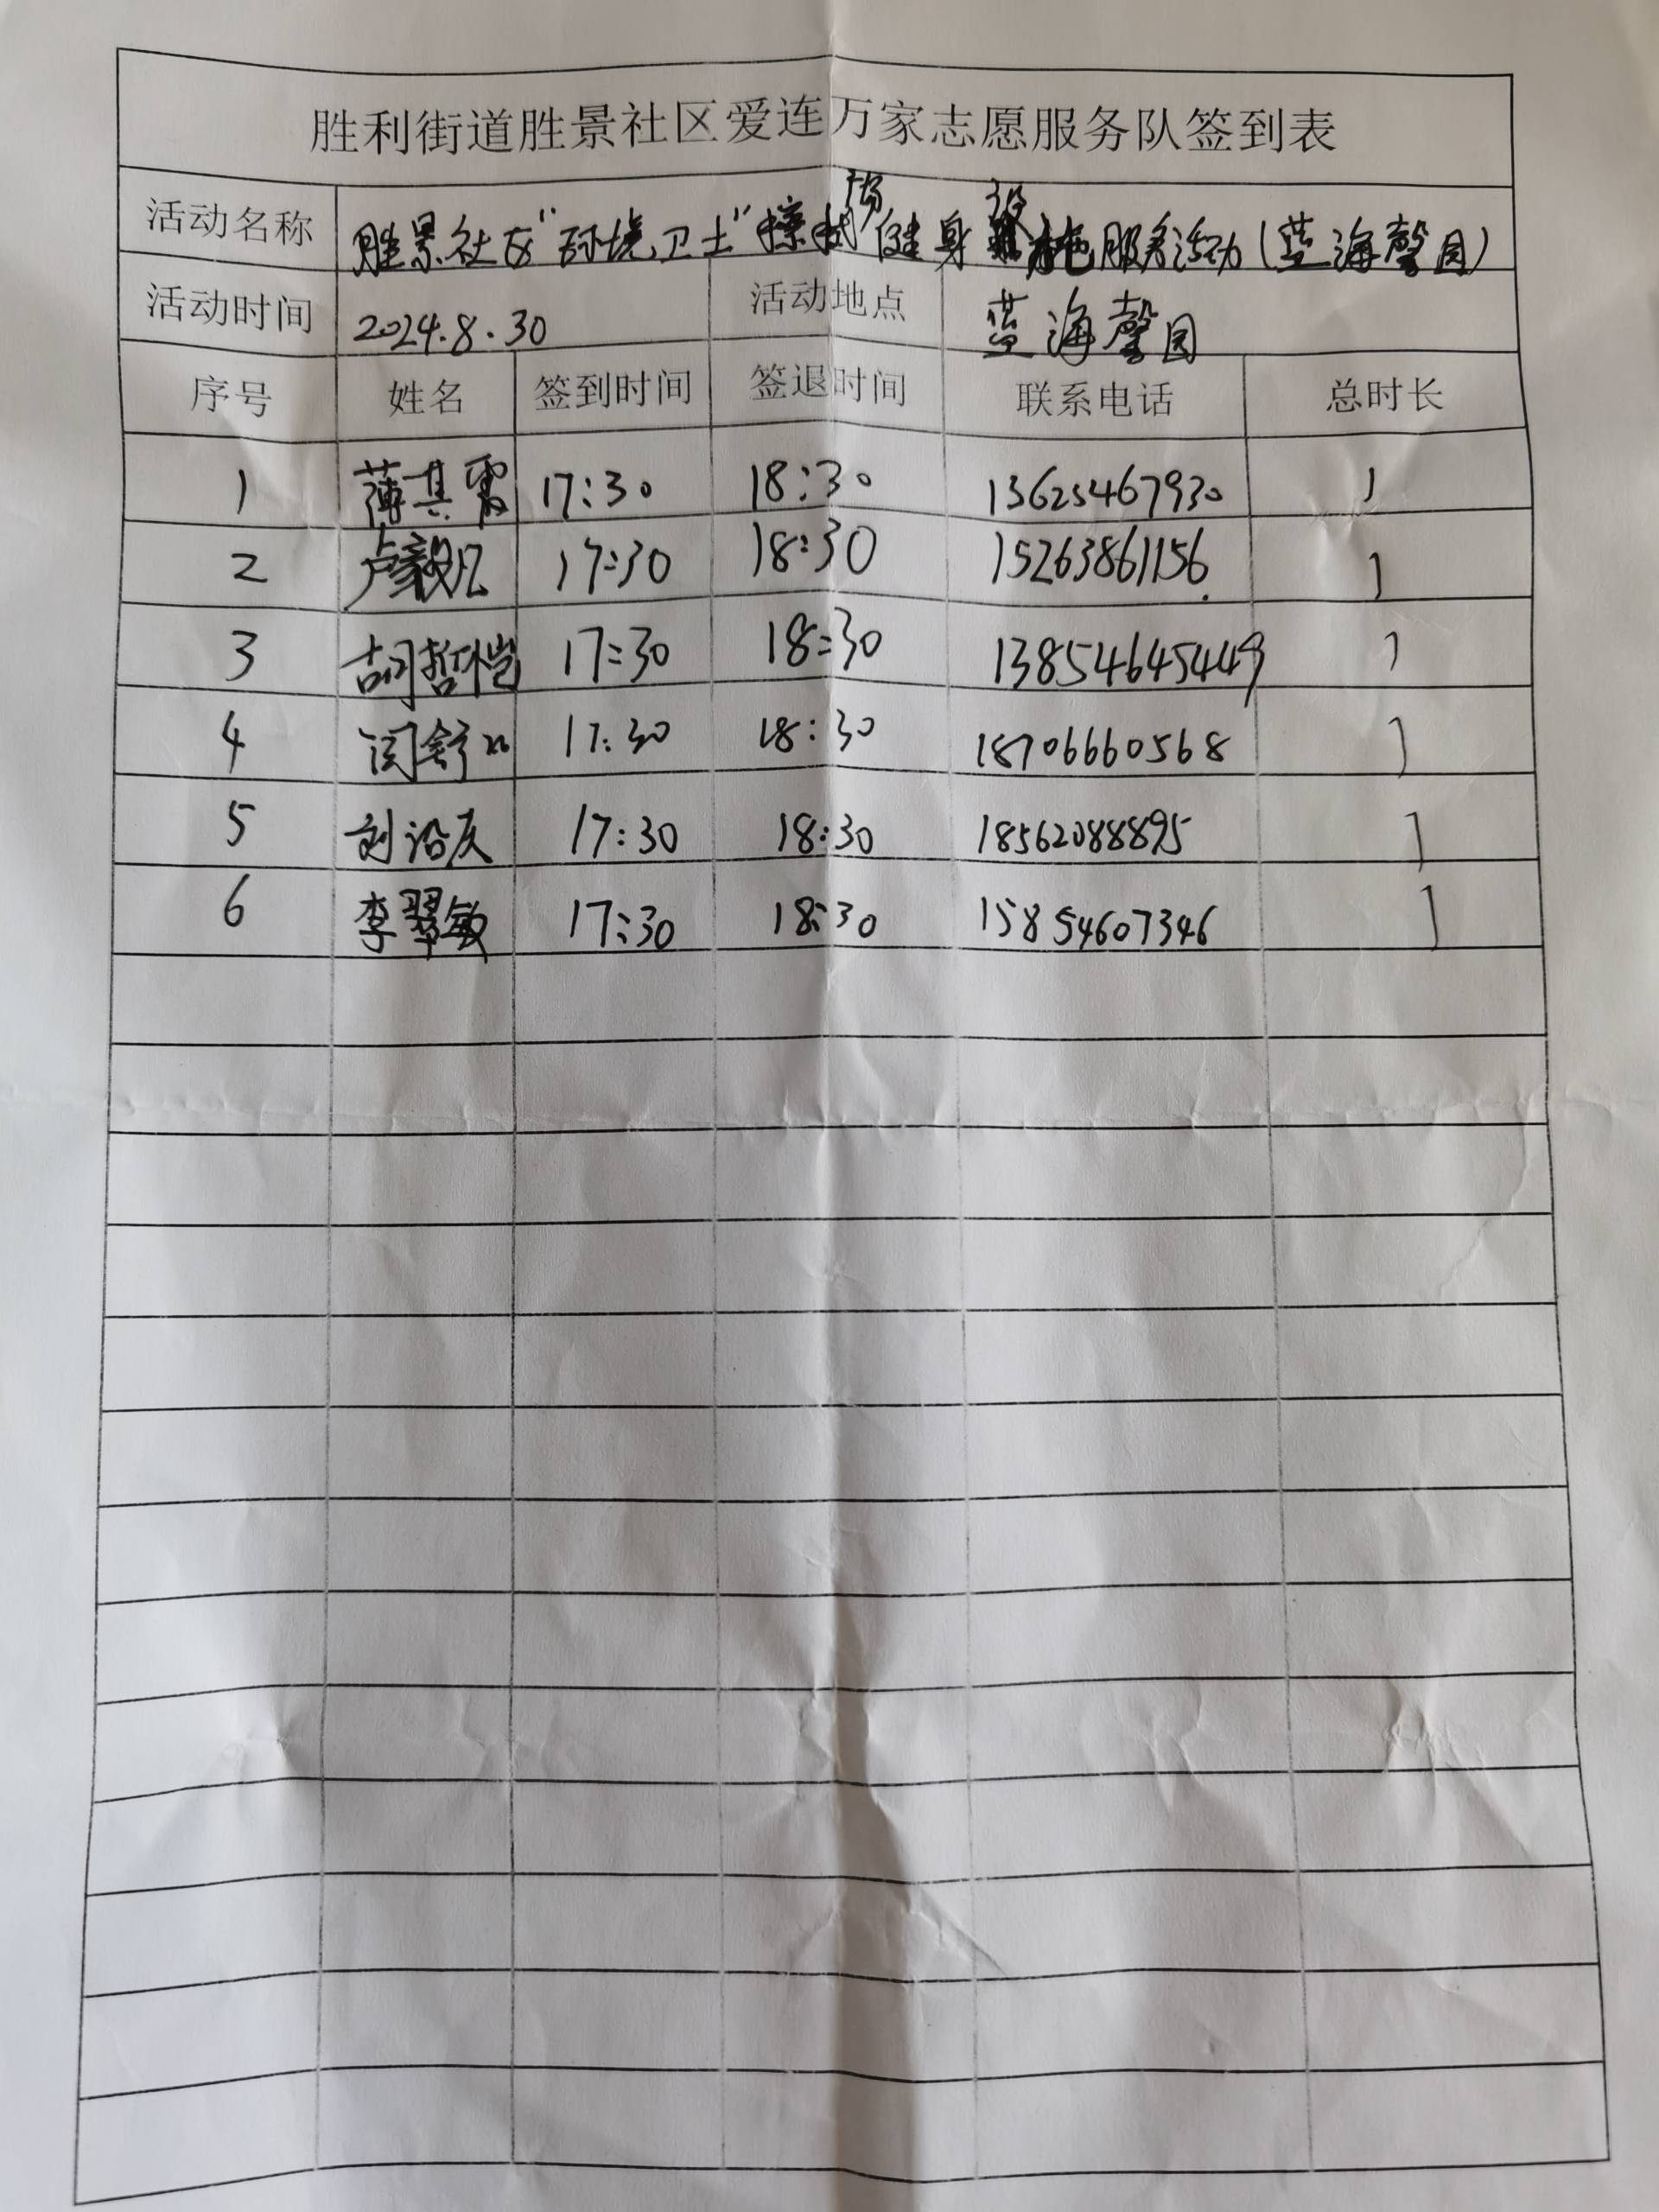 胜利街道胜景社区爱连万家志愿服务队签到表
活动名称 胜景社区“环境卫士”擦拭广场健身设施服务活动(蓝海馨园)
活动时间 2024.8.30 活动地点 蓝海馨园
序号 姓名 签到时间 签退时间 联系电话 总时长
1 薄其雷 17:30 18:30 13625467930 1
2 卢毅凡 17:30 18:30 15263861156 1
3 胡哲恺 17:30 18:30 13854645449 1
4 闫舒 17:30 18:30 18706660568 1
5 刘 17:30 18:30 18562088895 1
6 李翠敏 17:30 18:30 15854607346 1